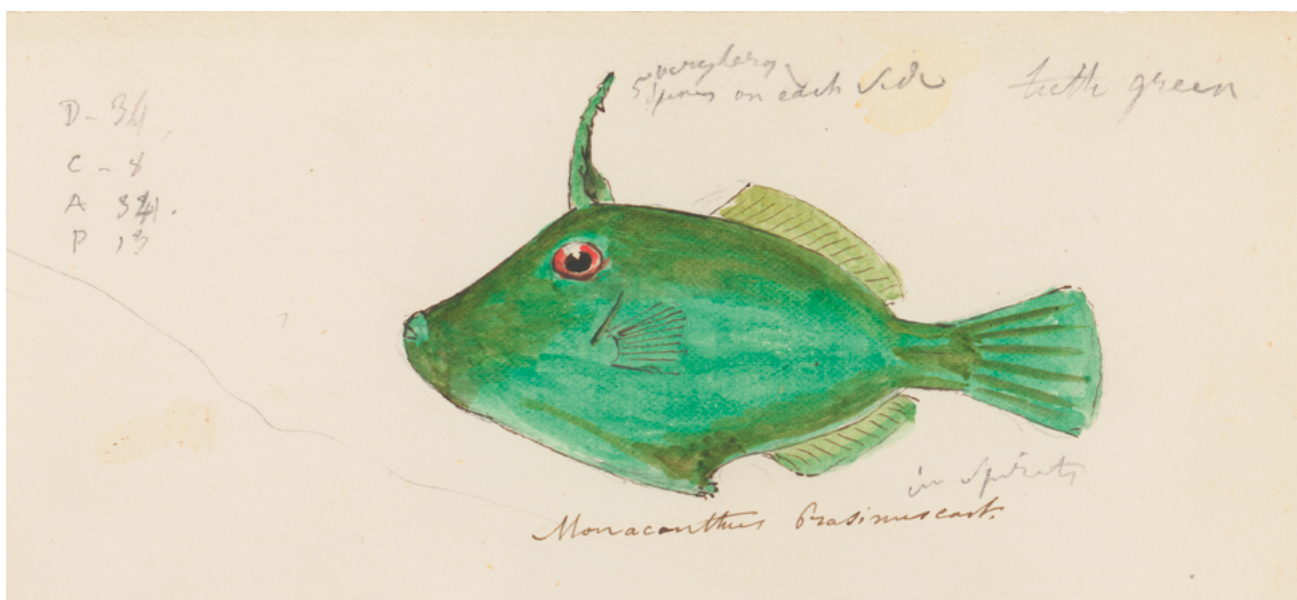 D - 34
C - 8
A 34.
P 13
5 very large
spines on each side
teeth green
in spirits
Monacanthus Prasinus cast.